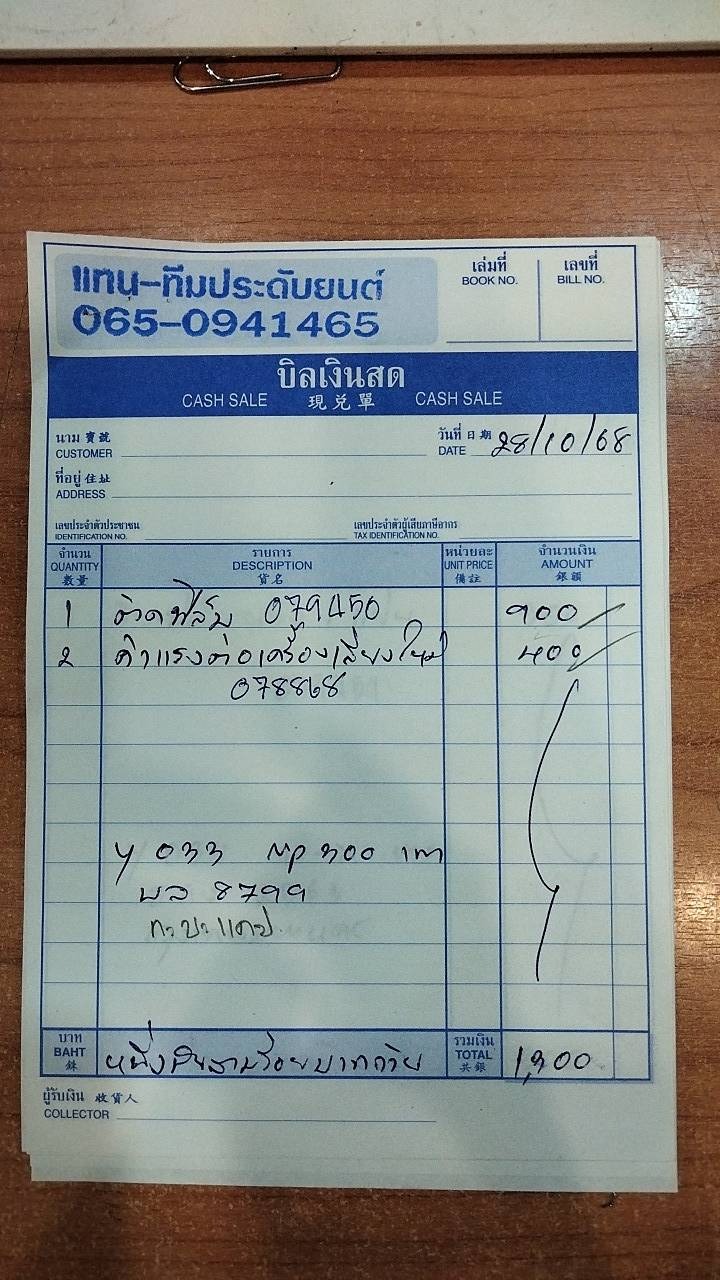 แทน-ทีมประดับยนต์
065-0941465
เล่มที่
BOOK NO.
เลขที่
BILL NO.
บิลเงินสด
CASH SALE 現兌單 CASH SALE
นาม 寳號
CUSTOMER
วันที่ 日期
DATE 28/10/68
ที่อยู่ 住址
ADDRESS
เลขประจำตัวประชาชน
IDENTIFICATION NO.
เลขประจำตัวผู้เสียภาษีอากร
TAX IDENTIFICATION NO.
จำนวน
QUANTITY
數量
รายการ
DESCRIPTION
貨名
หน่วยละ
UNIT PRICE
備註
จำนวนเงิน
AMOUNT
銀額
1 ติดฟิล์ม 079450 900
2 ค่าแรงต่อเครื่องเสียงใหม่ 400
078868
Y 033 NP 300 เทา
ผล 8799
บาท
BAHT
銖
หนึ่งพันสามร้อยบาทถ้วน
รวมเงิน
TOTAL
共銀
1,300
ผู้รับเงิน 收貨人
COLLECTOR